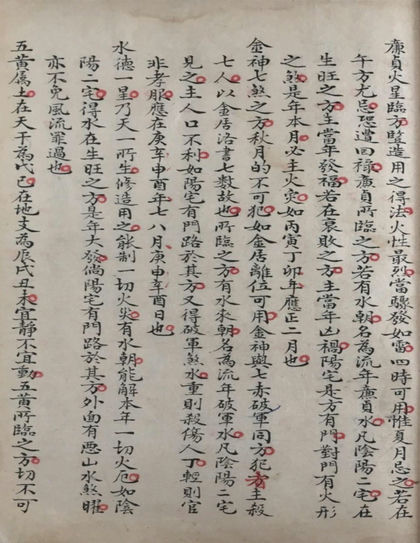 廉貞火星臨方豎造用之得法火性最烈當驟發如雷四時可用惟夏月忌之若在
午方尤忌恐遭回祿廉貞所臨之方若有水朝名為流年廉貞水凡陰陽二宅
生旺之方主當年發福若在衰敗之方主當年凶禍陽宅是方有門對門有火形
之煞是年本月必主火灾如丙寅丁卯年應正二月也
金神七煞之方秋月的不可犯如金居離位可用金神與七赤破軍同方犯者主殺
七人以金居洛書七數故也所臨之方有水來朝名為流年破軍水凡陰陽二宅
見之主人口不利如陽宅有門路於其方又得破軍煞水重則殺傷人丁輕則官
非孝服應在庚辛申酉年七八月庚申辛酉日也
水德一星乃天一所生修造用之能制一切火灾有水朝能解本年一切火厄如陰
陽二宅得水在生旺之方是年大發倘陽宅有門路於其方外面有惡山水煞曜
亦不免風流罪過也
五黃属土在天干為戊己在地支為辰戌丑未宜靜不宜動五黃所臨之方切不可